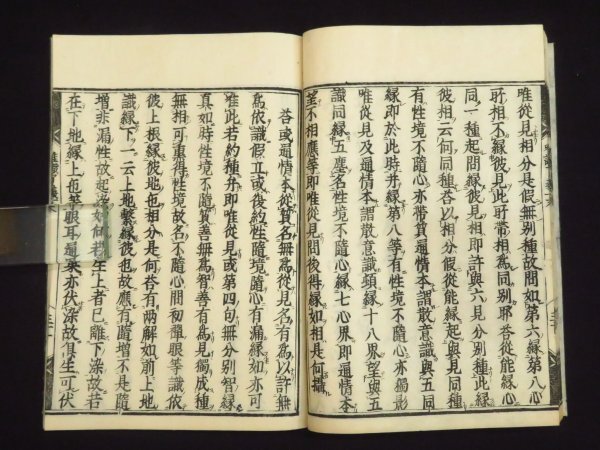 唯從見相分是假無別種故問如第六緣第八心
所相不緣彼見此所帶相為同別耶答從能緣心
同一種起問緣彼見相即許與六見分別種此緣
彼相云何同種答以相分假從能緣起與見同種
有性境不隨心亦帶質通情本謂散意識與五同
緣即於此時并緣第八等有性境不隨心亦獨影
唯從見及通情本謂散意識頓緣十八界望與五
識同緣五塵名性境不隨心緣七心界即通情本
望不相應等即唯從見問後得緣如相是何攝
答或通情本從質名無為從見名有為以許無
為依識假立或後約性隨境隨心有漏緣如亦可
唯此若約種并即唯從見或第四句無分別智緣
真如時性境不隨質善無為智善有為見獨成種
無相可重得性境故名不隨心問初禪眼等識依
彼上根緣彼地色相分是何答有兩解如前上地
識緣下一云上地繫緣彼色故應有隨增不是隨
增非漏性故起染如何若生上者已離下染故若
在下地緣上色等眼耳通果亦伏染故俱生可伏